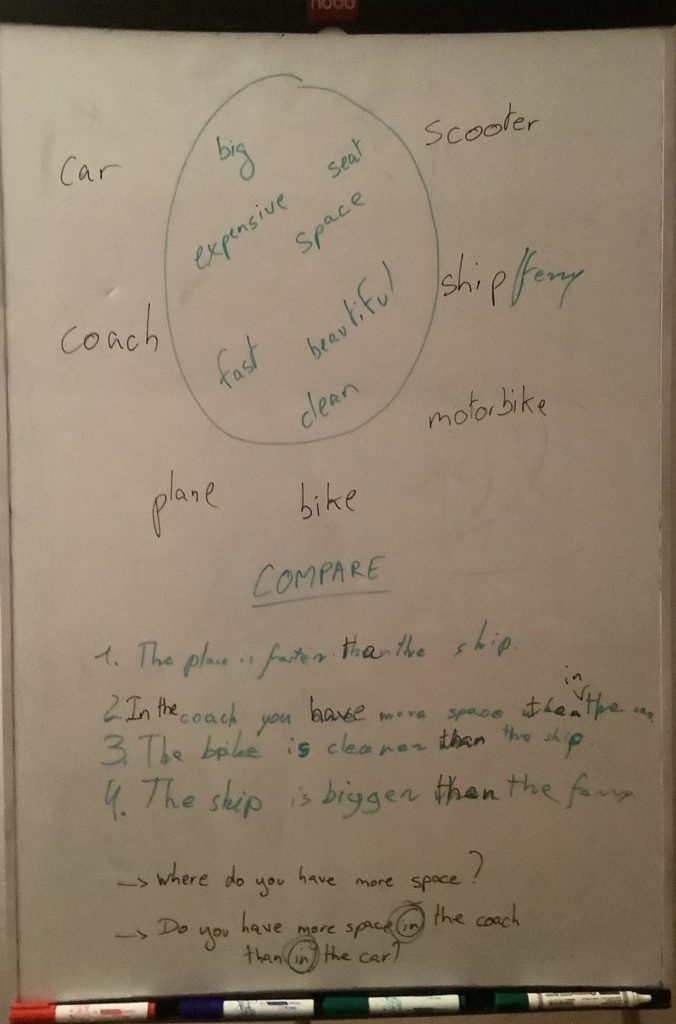 nobo
big
seat
scooter
car
expensive
space
ship/ferry
coach
fast
beautiful
clean
motorbike
plane
bike
COMPARE
1. The plane is faster than the ship.
in
2. In the coach you have more space than the car
3. The bike is cleaner than the ship.
4. The ship is bigger than the ferry
-> Where do you have more space?
-> Do you have more space in the coach
than in the car?